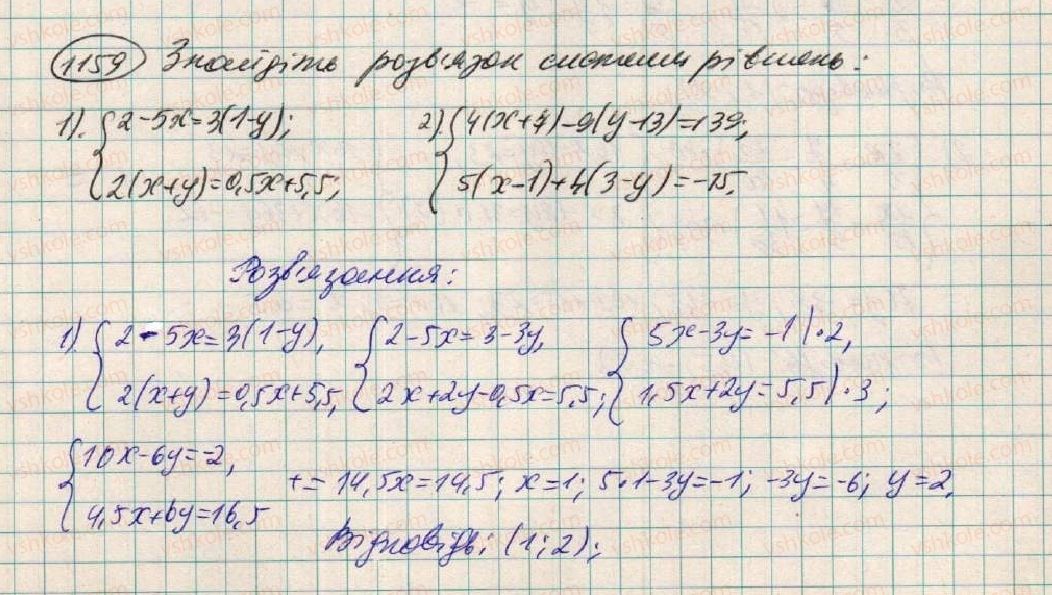 1159 Знайдіть розв'язок системи рівнянь:
1). { 2-5x=3(1-y); 2(x+y)=0,5x+5,5;
2). { 4(x+4)-9(y-13)=139; 5(x-1)+4(3-y)=-15.
Розв'язання:
1). { 2-5x=3(1-y), 2(x+y)=0,5x+5,5; { 2-5x=3-3y, 2x+2y-0,5x=5,5; { 5x-3y=-1|·2, 1,5x+2y=5,5|·3;
{ 10x-6y=-2, 4,5x+6y=16,5
+= 14,5x=14,5; x=1; 5·1-3y=-1; -3y=-6; y=2.
Відповідь: (1;2);
vshkole.com